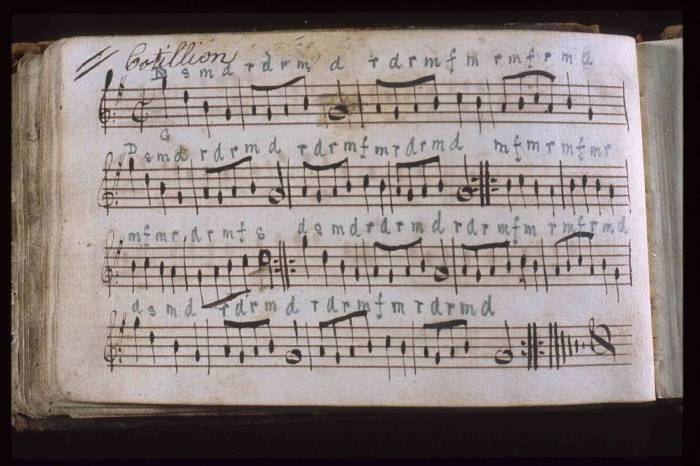 Cotillion
D s m d r d r m d r d r m f m r m f r m d
G
D s m d r d r m d r d r m f m r d r m d m f m r m f m r
m f m r d r m f s d s m d r d r m d r d r m f m r m f r m d
d s m d r d r m d r d r m f m r d r m d